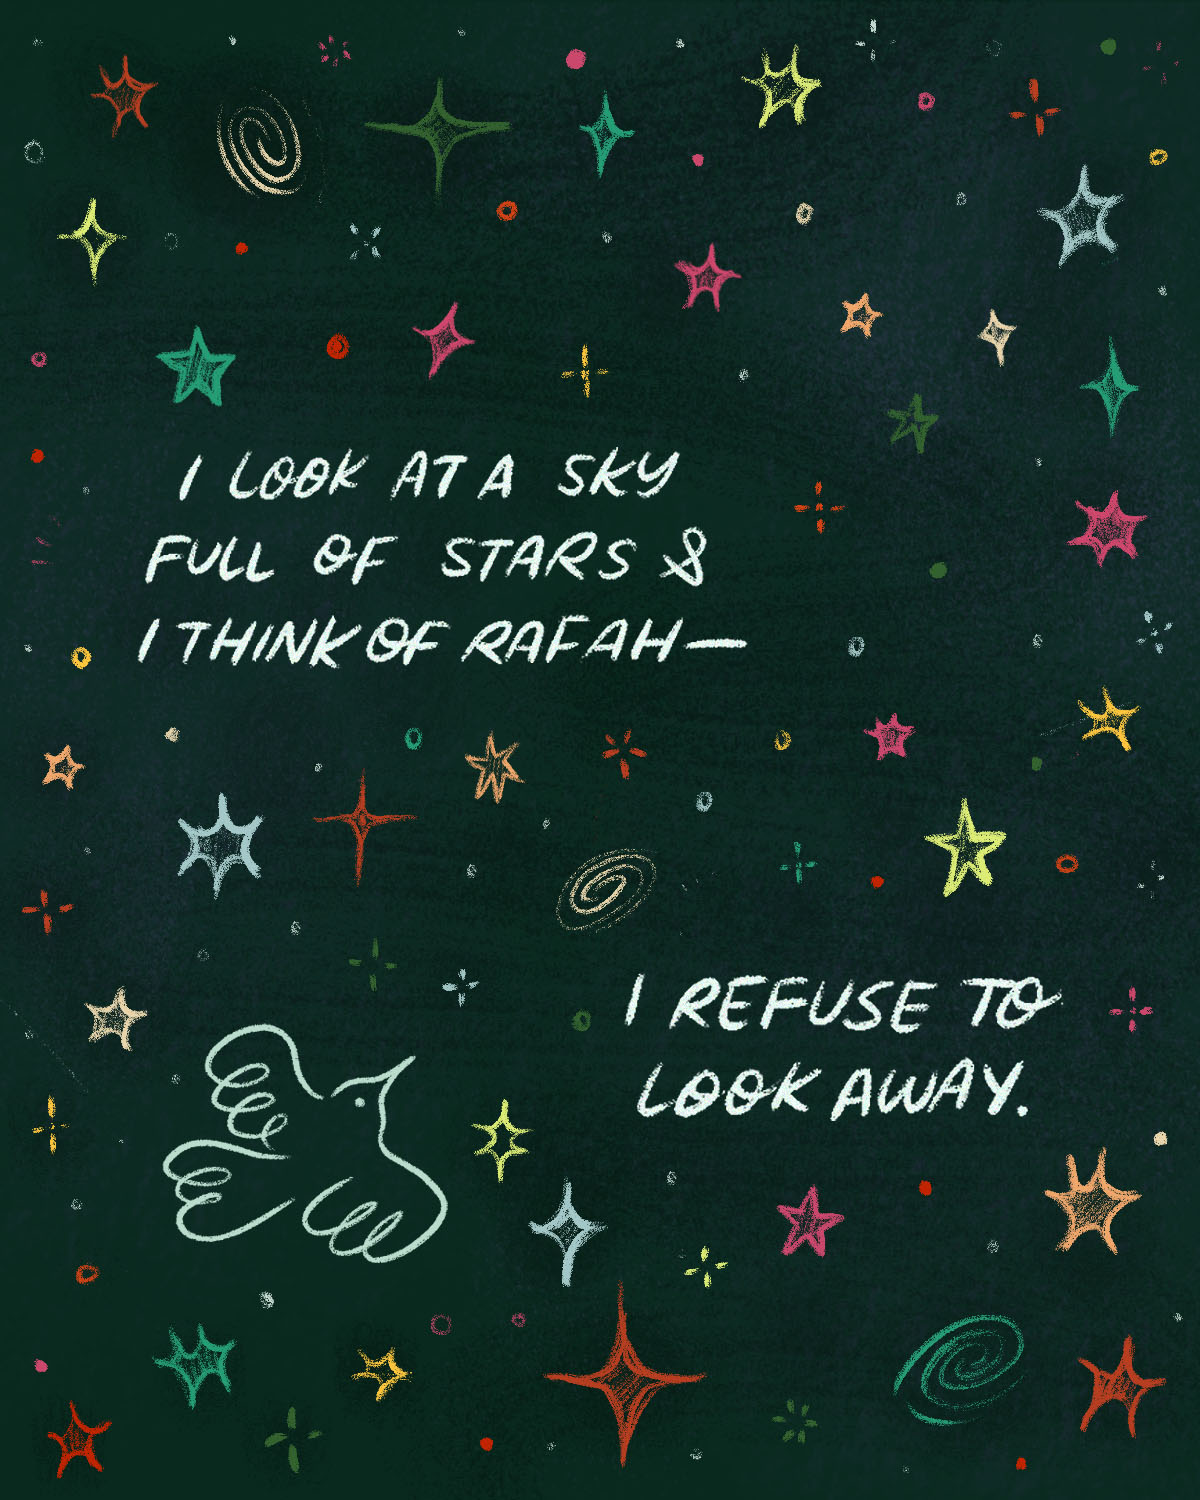 I LOOK AT A SKY
FULL OF STARS &
I THINK OF RAFAH—
I REFUSE TO
LOOK AWAY.